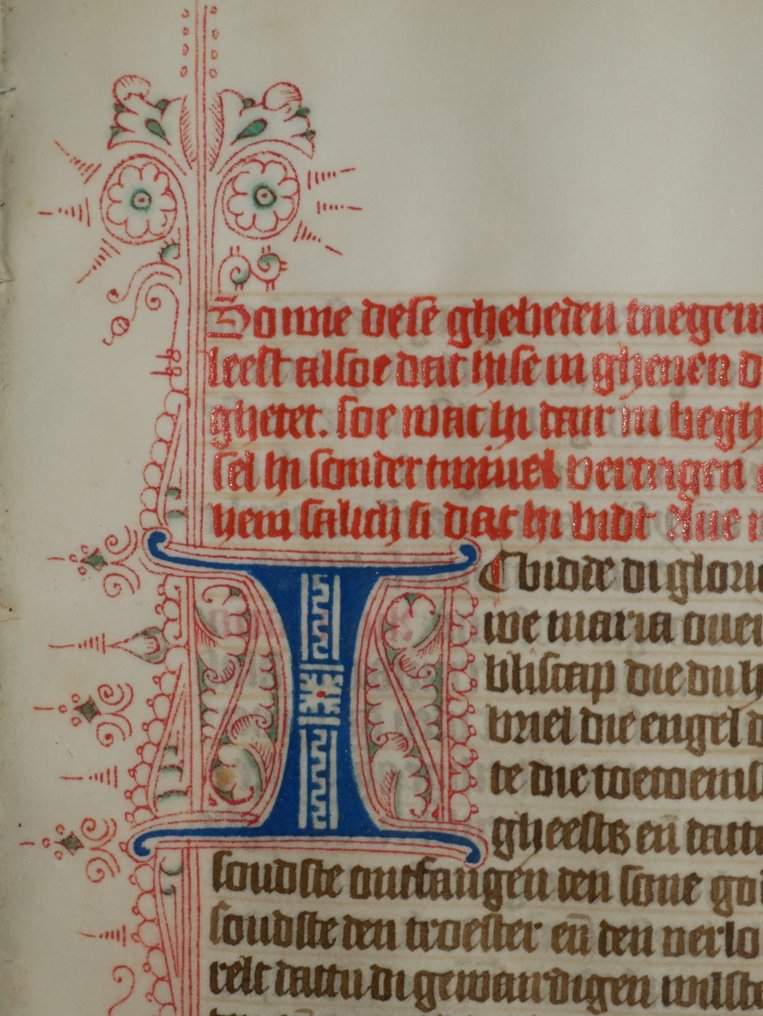 So wie dese ghebeden mit
leest alsoe dat hise in gheuen d
ghetet. soe wat hi dair in begh
sel hi sonder twiuel vercrigen
hem salich si dat hi bidt Aue
I C bidde di glorio
we maria ouer
bliscap die du h
briel die engel d
te die toecoemst
gheests en̄ dattu
soudste ontfangen den sone go
soudste den troester en̄ den verlo
relt dattu di gewaerdigen wilste